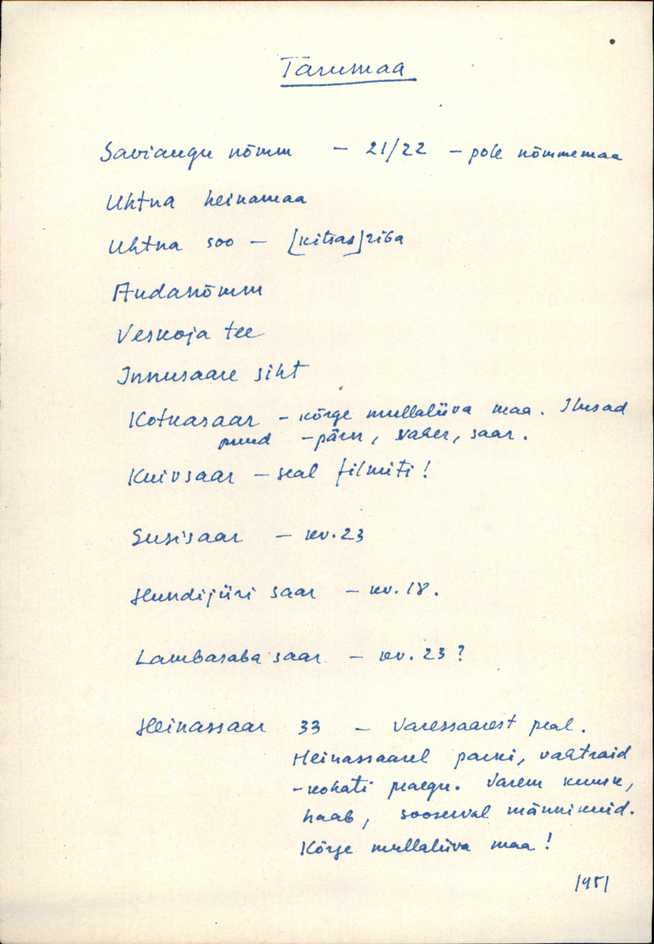 Tarumaa
Saviaugu nõmm – 21/22 – pole nõmmemaa
Uhtna heinamaa
Uhtna soo – [kitsas] riba
Audanõmm
Veskoja tee
Innusaare siht
Kotkasaar – kõrge mullaliiva maa. Ilusad
puud – pärn, vaher, saar.
Kuivsaar – seal filmiti!
Susisaar – kv. 23
Hundijüri saar – kv. 18.
Lambasaba saar – kv. 23?
Heinassaar 33 – Varessaarest peal.
Heinassaarel parki, vahtraid
– kohati praegu. Varem kuuse,
haab, sooserval männikuid.
Kõrge mullaliiva maa!